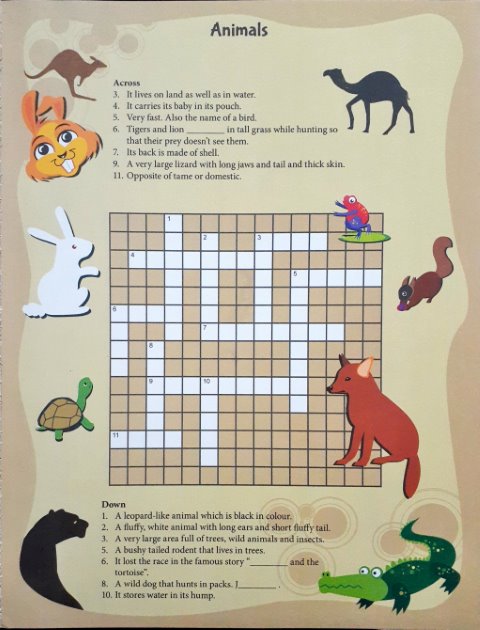 Animals
Across
3. It lives on land as well as in water.
4. It carries its baby in its pouch.
5. Very fast. Also the name of a bird.
6. Tigers and lion ________ in tall grass while hunting so
that their prey doesn't see them.
7. Its back is made of shell.
9. A very large lizard with long jaws and tail and thick skin.
11. Opposite of tame or domestic.
1
2
3
4
5
6
7
8
9
10
11
Down
1. A leopard-like animal which is black in colour.
2. A fluffy, white animal with long ears and short fluffy tail.
3. A very large area full of trees, wild animals and insects.
5. A bushy tailed rodent that lives in trees.
6. It lost the race in the famous story "________ and the
tortoise".
8. A wild dog that hunts in packs. J________ .
10. It stores water in its hump.